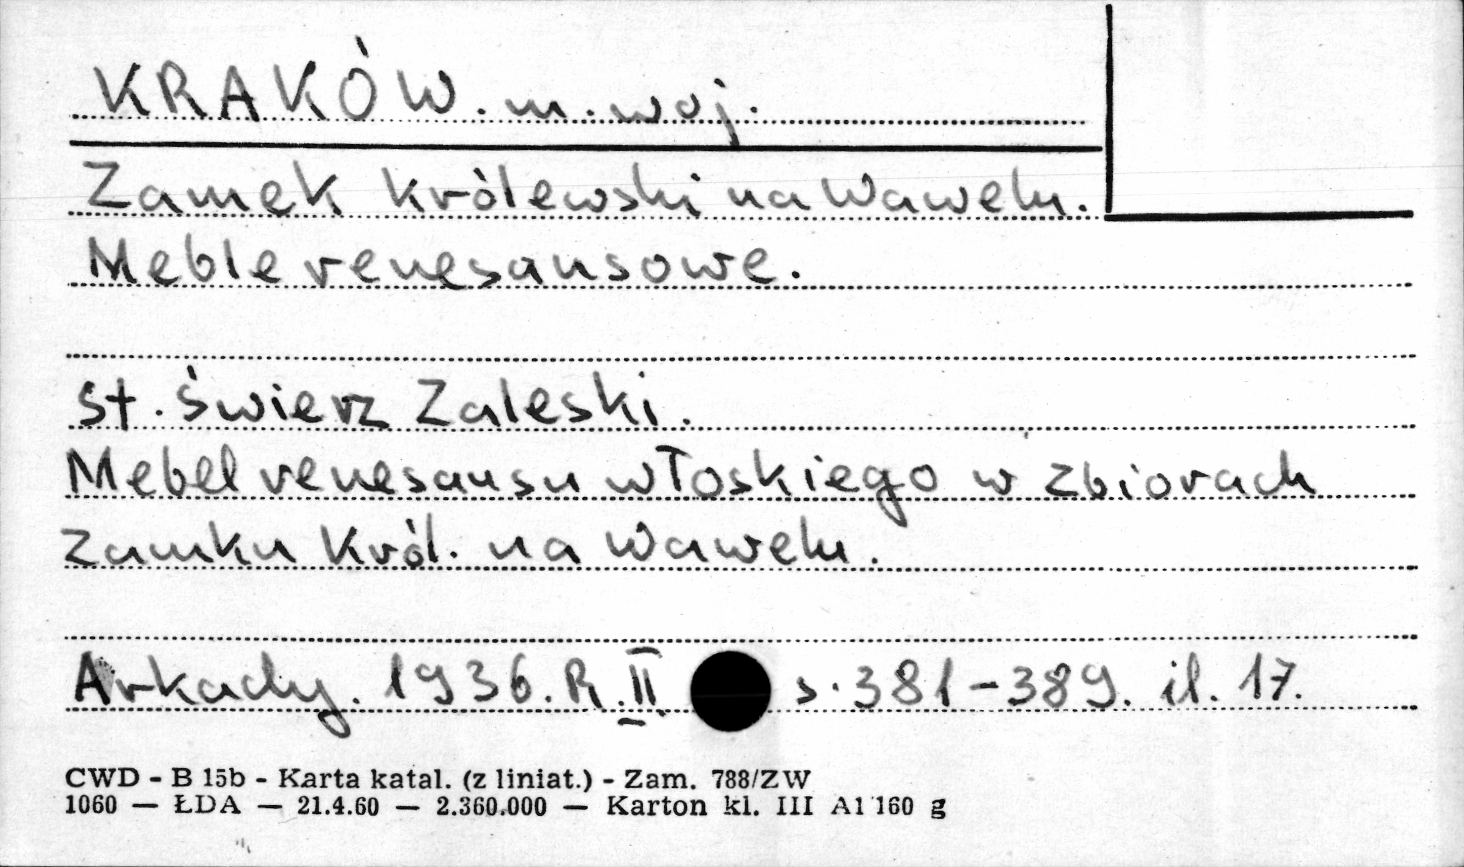 KRAKÓW. m. woj.
Zamek królewski na Wawelu.
Meble renesansowe.
St. Świerz Zaleski.
Mebel renesansu włoskiego w zbiorach
Zamku Król. na Wawelu.
Arkady. 1936. R. II s. 381-389. il. 17.
CWD - B 15b - Karta katal. (z liniat.) - Zam. 788/ZW
1060 — ŁDA — 21.4.60 — 2.360.000 — Karton kl. III A1 160 g